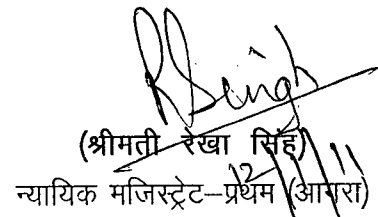 RSingh
(श्रीमती रेखा सिंह)
न्यायिक मजिस्ट्रेट–प्रथम (आगरा)